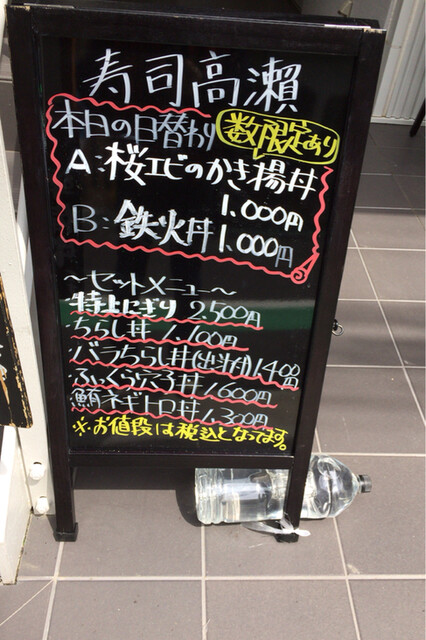 寿司高瀬
本日の日替わり 数限定あり
A:桜エビのかき揚丼
1.000円
B:鉄火丼1.000円
～セットメニュー～
特上にぎり 2.500円
ちらし丼 1.100円
バラちらし丼(出汁付)1400円
ふっくら穴子丼 1600円
鮪ネギトロ丼 1.300円
※お値段は税込となってます。